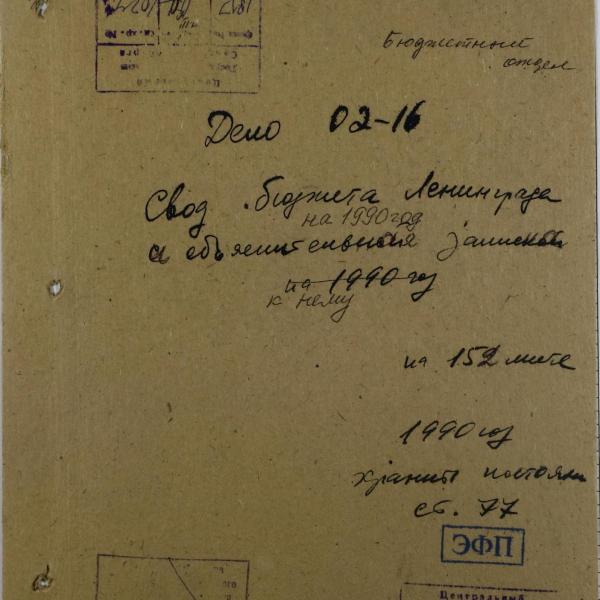 Бюджетный
отдел
Дело 02-16
Свод бюджета Ленинграда
на 1990 год
и объяснительная записка
на 1990 год
к нему
на 152 листе
1990 год
хранить постоян
ст. 77
ПФЭ
Центральный